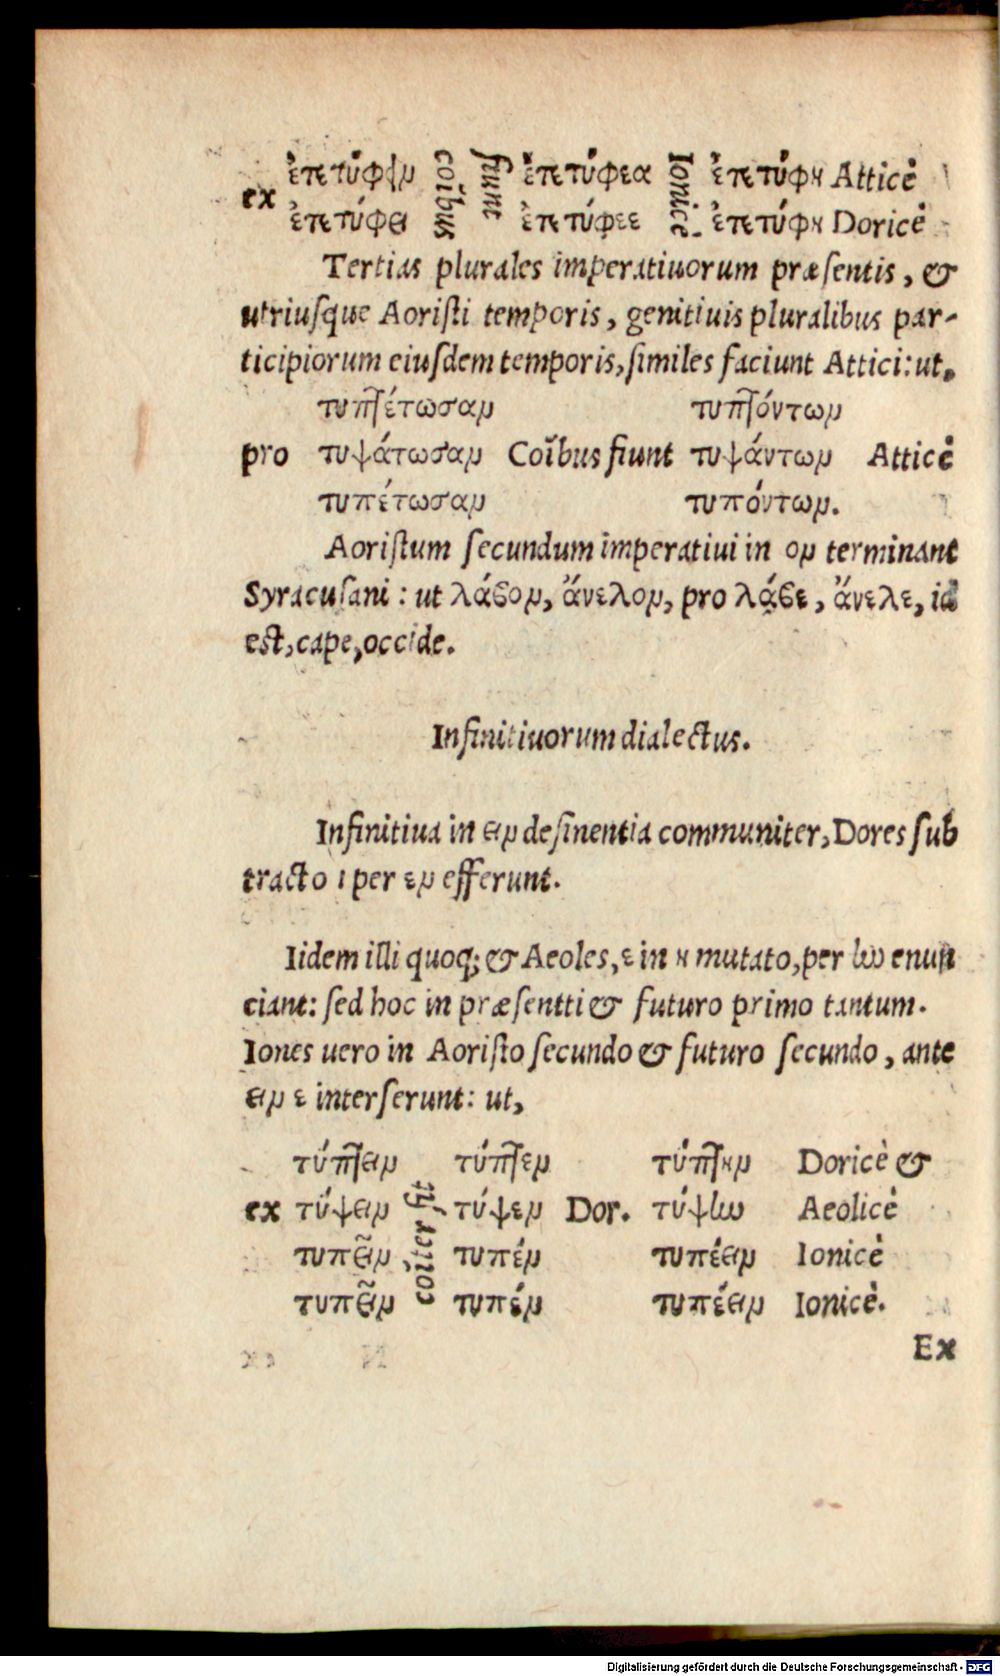 ἐπετύφειν ἐπετύφεα ἐπετύφη Atticè
ex coībus fiunt Ionicè.
ἐπετύφει ἐπετύφεε ἐπετύφη Doricè
Tertias plurales imperatiuorum præsentis, &
utriusque Aoristi temporis, genitiuis pluralibus par-
ticipiorum eiusdem temporis, similes faciunt Attici: ut,
τυπτέτωσαν τυπτόντων
pro τυψάτωσαν Coībus fiunt τυψάντων Atticè
τυπέτωσαν τυπόντων.
Aoristum secundum imperatiui in ον terminant
Syracusani: ut λάβον, ἄνελον, pro λάβε, ἄνελε, id
est, cape, occide.
Infinitiuorum dialectus.
Infinitiua in ειν desinentia communiter, Dores sub
tracto ι per εν efferunt.
Iidem illi quoq; & Aeoles, ε in η mutato, per ην enun
ciant: sed hoc in præsentti & futuro primo tantum.
Iones uero in Aoristo secundo & futuro secundo, ante
ειν ε interserunt: ut,
τύπτειν τύπτεν τύπτην Doricè &
ex τύψειν coīter fit τύψεν Dor. τύψην Aeolicè
τυπεῖν τυπέν τυπέειν Ionicè
τυπεῖν τυπέν τυπέειν Ionicè.
Ex
Digitalisierung gefördert durch die Deutsche Forschungsgemeinschaft - DFG